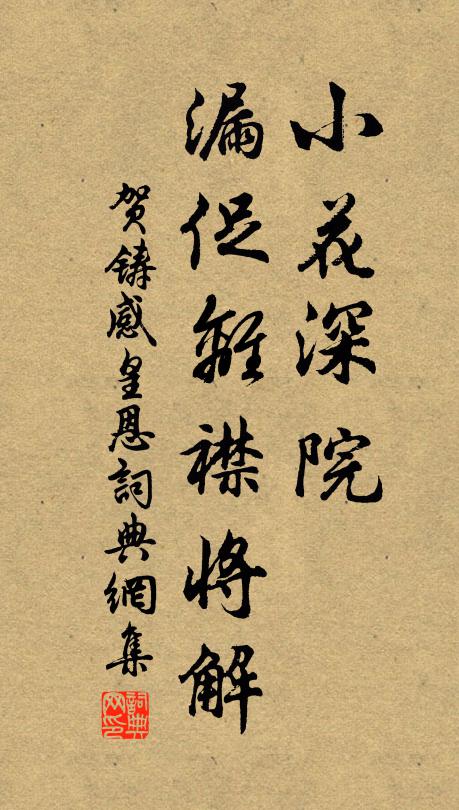 小花深院
漏促離襟將解
贺鑄感皇恩詞典網集
詞典网印